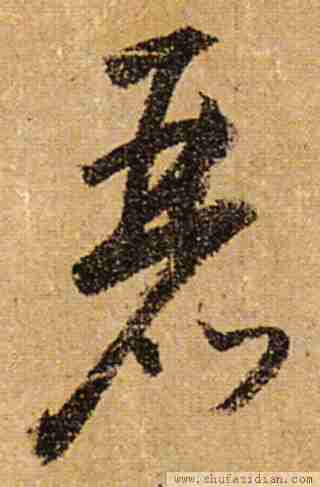 惡
www.shufazidian.com